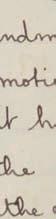 ndm
moti
t h
the
the